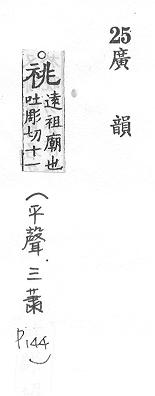 25廣韻
○祧遠祖廟也
吐彫切十一
(平聲三蕭P.144)